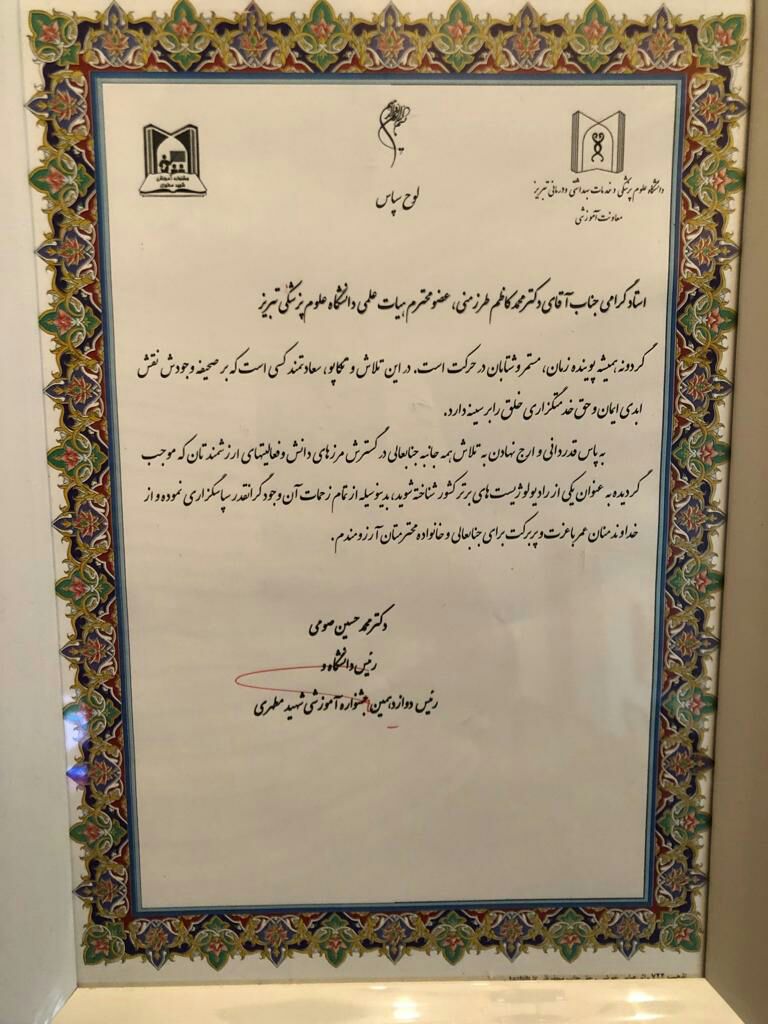 جشنواره آموزشی
شهید مطهری
دانشگاه علوم پزشکی و خدمات بهداشتی و درمانی تبریز
معاونت آموزشی
لوح سپاس
استاد گرامی جناب آقای دکتر محمد کاظم طرزمنی، عضو محترم هیات علمی دانشگاه علوم پزشکی تبریز
گردونه همیشه پوینده زمان، مستمر و شتابان در حرکت است. در این تلاش و تکاپو، سعادتمند کسی است که بر صحیفه وجودش نقش
ابدی ایمان و حق خدمتگزاری خلق را بر سینه دارد.
به پاس قدردانی و ارج نهادن به تلاش همه جانبه جنابعالی در گسترش مرزهای دانش و فعالیتهای ارزشمندتان که موجب
گردیده به عنوان یکی از رادیولوژیست های برتر کشور شناخته شوید، بدینوسیله از تمام زحمات آن وجود گرانقدر سپاسگزاری نموده و از
خداوند منان عمر با عزت و پربرکت برای جنابعالی و خانواده محترمتان آرزومندم.
دکتر محمد حسین صومی
رئیس دانشگاه و
رئیس دوازدهمین جشنواره آموزشی شهید مطهری